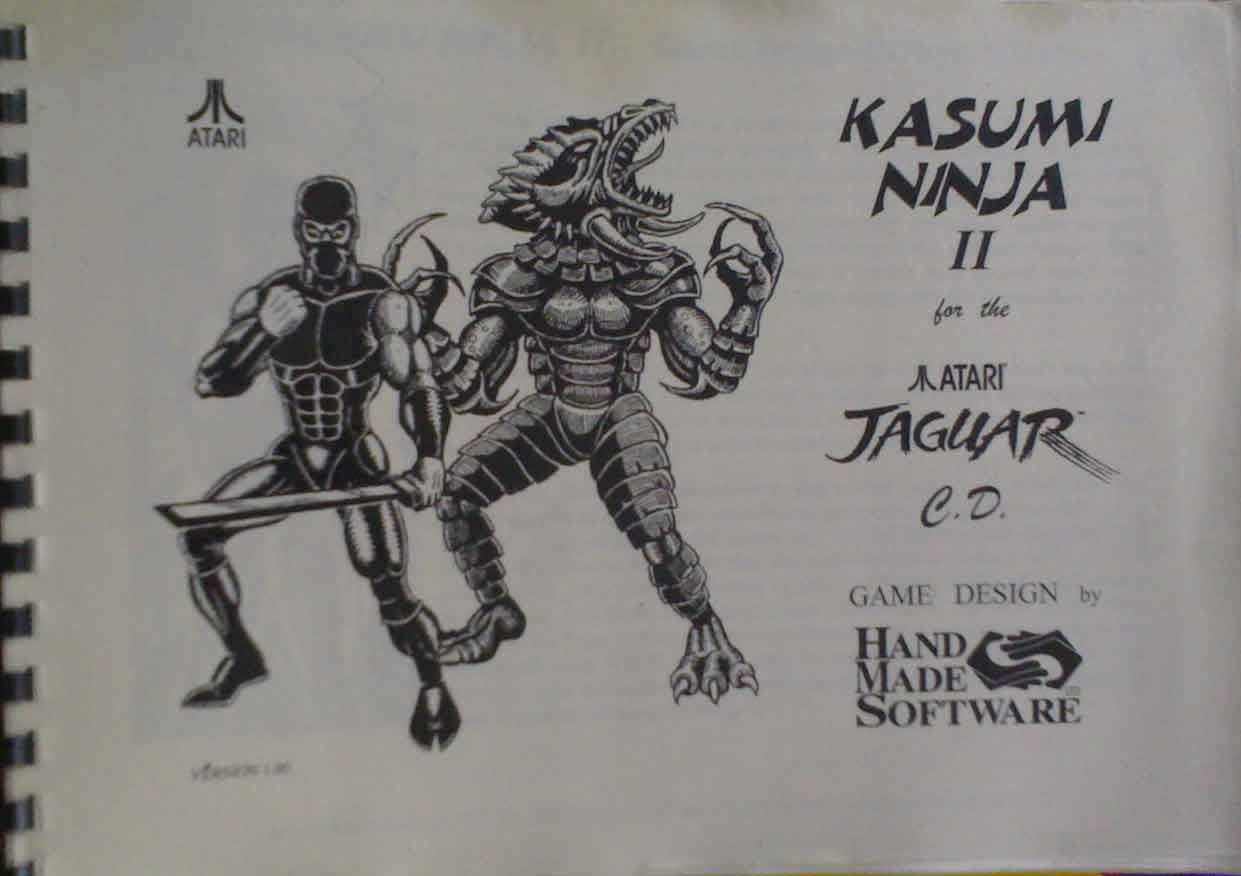 ATARI
KASUMI
NINJA
II
for the
ATARI
JAGUAR™
C.D.
GAME DESIGN by
HAND
MADE
SOFTWARE
VERSION